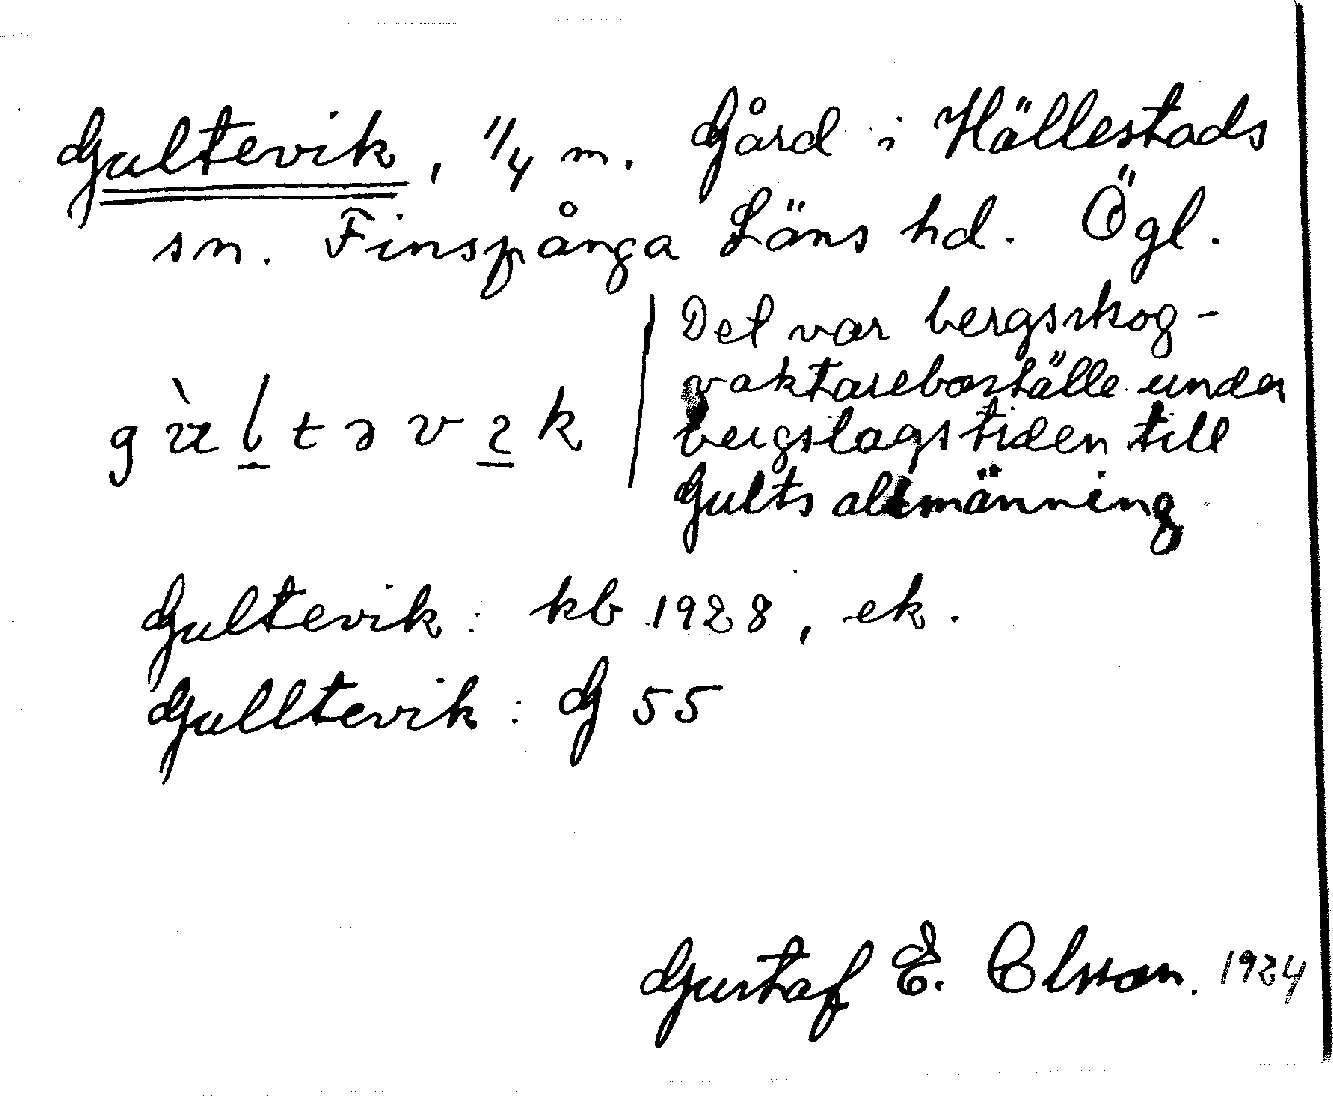 Gultevik, 1/4 m. Gård i Hällestads
sn. Finspånga Läns hd. Ögl.
Det var bergsskog-
vaktareboställe under
gù̀ltəvık
bergslagstiden till
Gults allmänning
Gultevik: kb 1928, ek.
Gulltevik: G 55
Gustaf E. Olsson. 1924